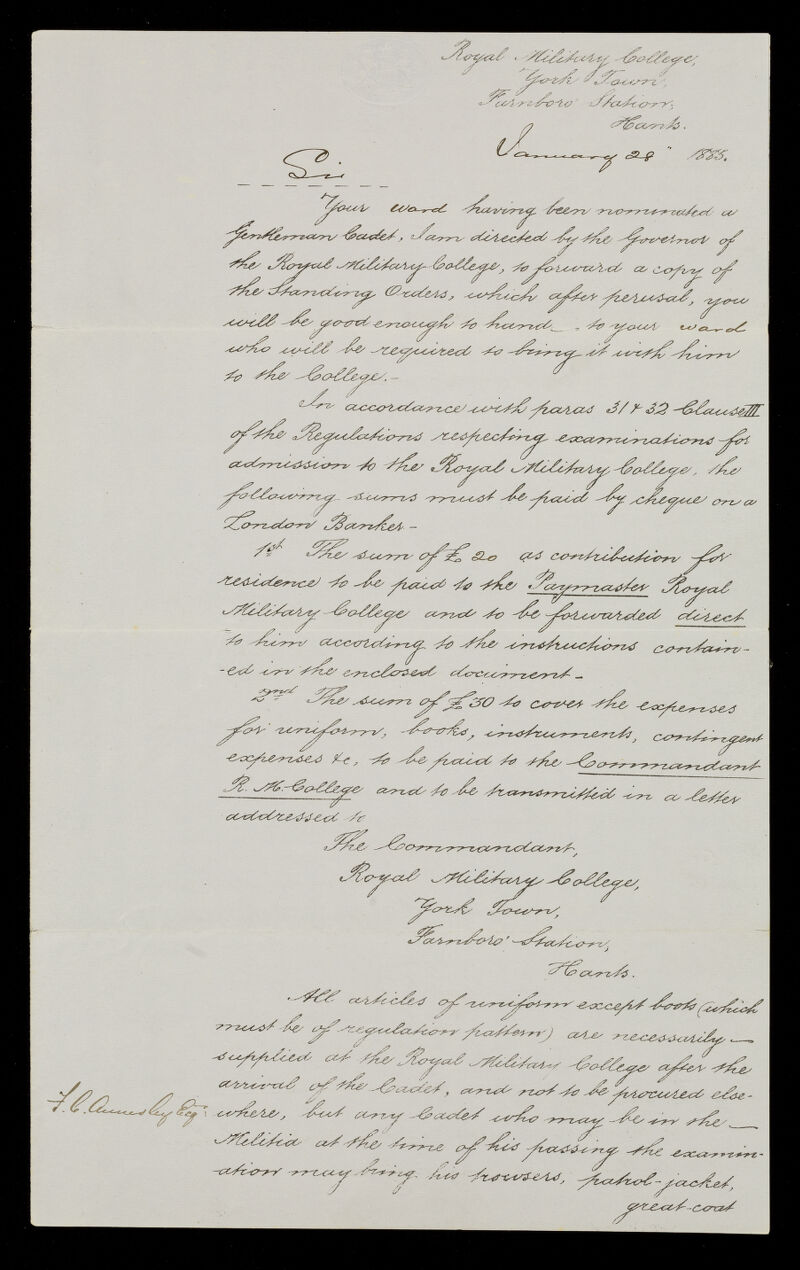 Royal Military College,
York Town,
Farnboro' Station,
Hants.
January 28" 1885.
Sir
Your ward having been nominated a
Gentleman Cadet, I am directed by the Governor of
the Royal Military College, to forward a copy of
the Standing Orders, which after perusal, you
will be good enough to hand - to your ward
who will be required to bring it with him
to the College.-
In accordance with paras 31 & 32 Clause III
of the Regulations respecting examinations for
admission to the Royal Military College, the
following sums must be paid by cheque on a
London Banker -
1st The sum of £20 as contribution for
residence to be paid to the Paymaster Royal
Military College and to be forwarded direct
to him according to the instructions contain-
-ed in the enclosed document -
2nd The sum of £30 to cover the expenses
for uniform, books, instruments, contingent
expenses &c, to be paid to the Commandant
R. M. College and to be transmitted in a letter
addressed to
The Commandant,
Royal Military College,
York Town,
Farnboro' Station,
Hants.
All articles of uniform except boots (which
must be of regulation pattern) are necessarily —
supplied at the Royal Military College after the
arrival of the Cadet, and not to be procured else-
where, but any Cadet who may be in the —
Militia at the time of his passing the examin-
ation may bring his trowsers, patrol-jacket,
great-coat
F. C. Annesley Esq: